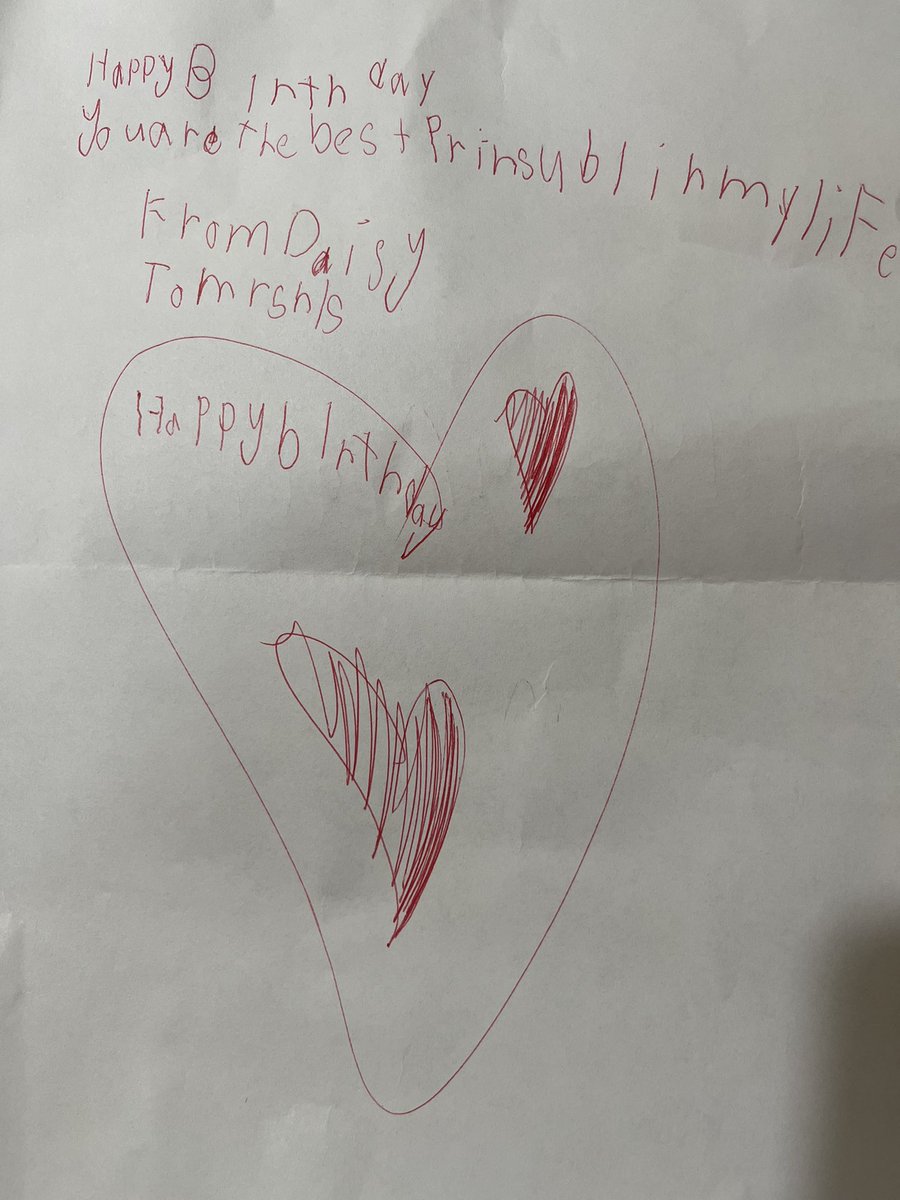 Happy B irthday
You are the best Prinsubl in my liFe
From Daisy
To mrshls
Happy birthday